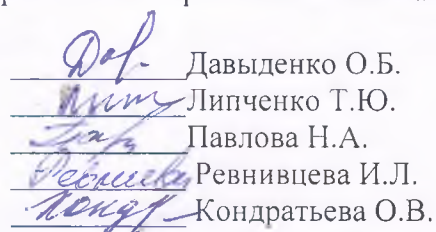 Давыденко О.Б.
Липченко Т.Ю.
Павлова Н.А.
Ревнивцева И.Л.
Кондратьева О.В.